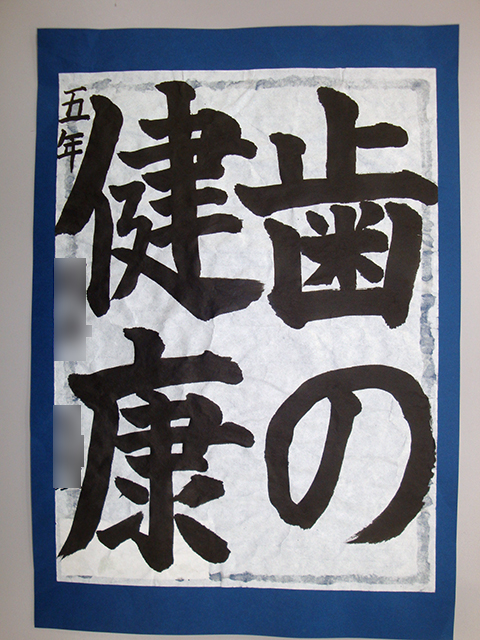 歯の
健康
五年